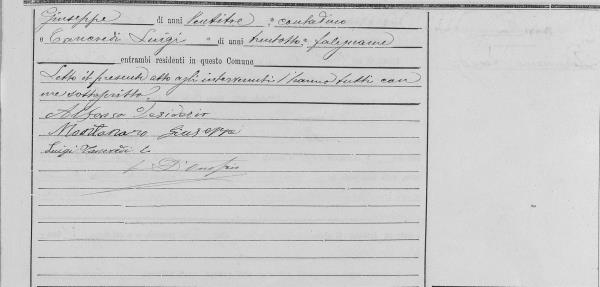 Giuseppe di anni ventitre, contadino
e Tancredi Luigi, di anni trentotto, falegname
entrambi residenti in questo Comune
Letto il presente atto agli intervenuti l'hanno tutti con
me sottoscritto.
Alfonso Desiderio
Montanaro Giuseppe
Luigi Tancredi
D'Onofrio